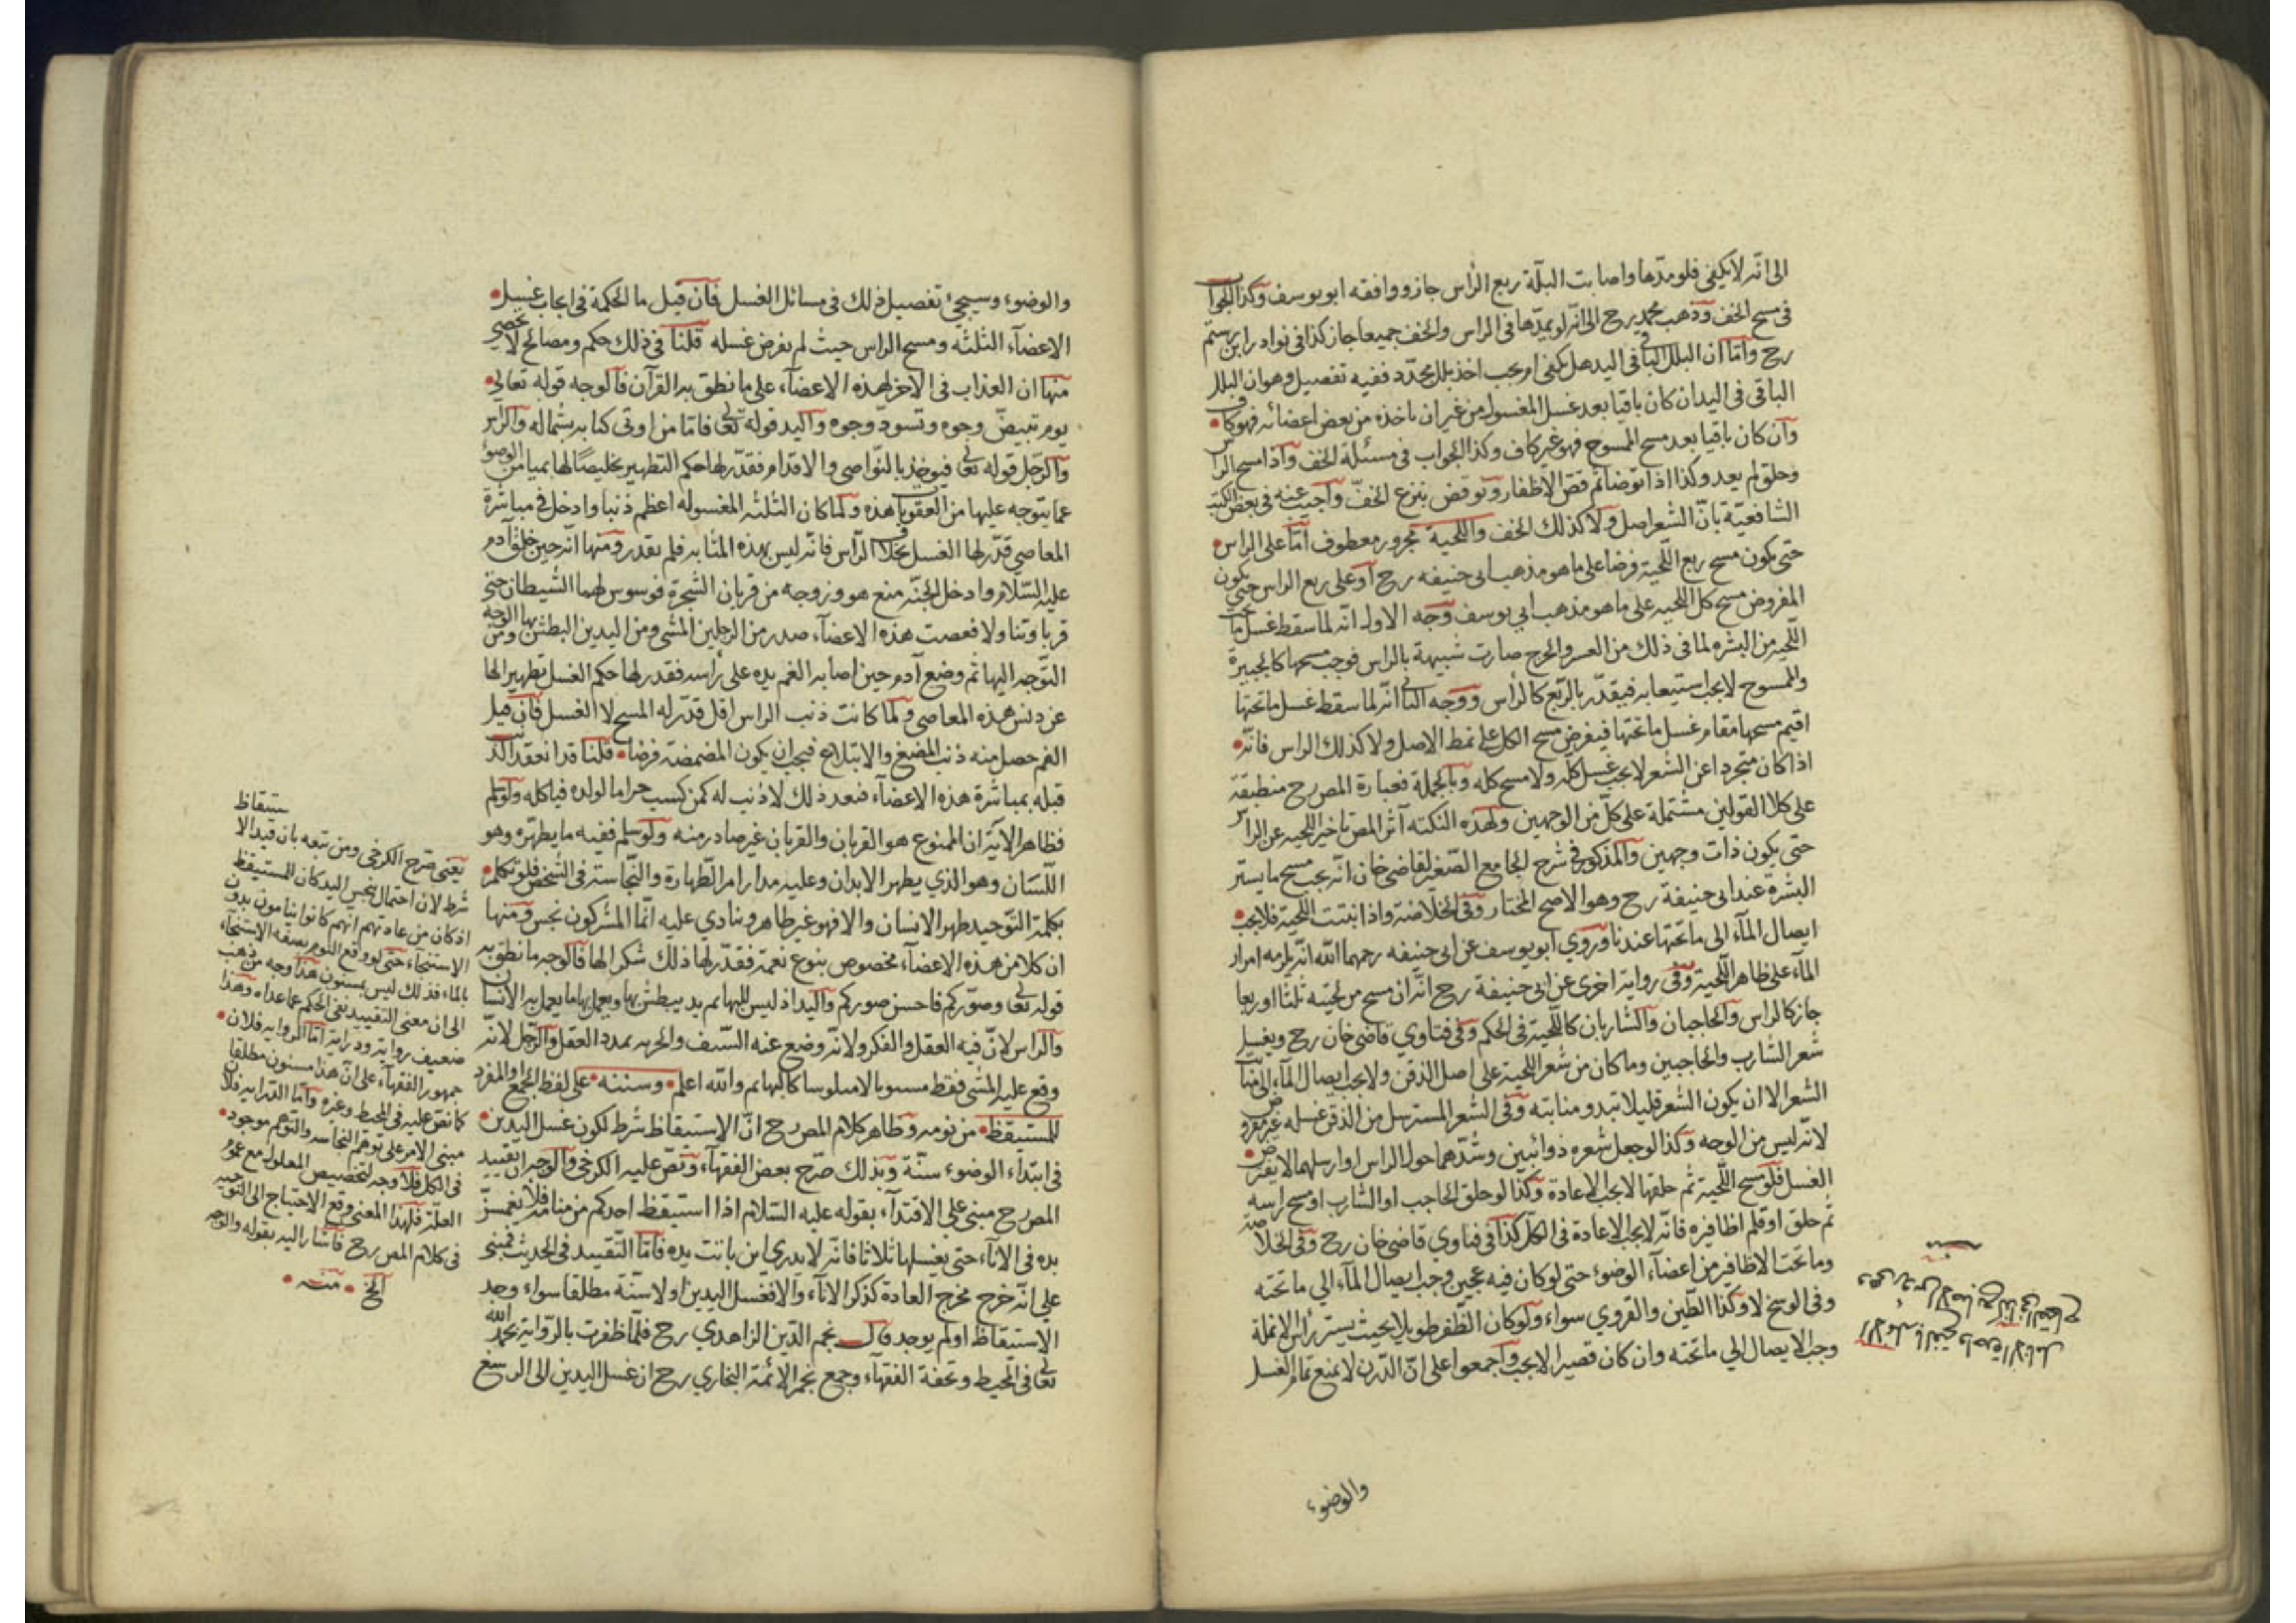 الى انّه لا يكفى فلو مدّها واصابت البلّة ربع الرأس جاز ووافقه ابو يوسف وكذا الجواب
فى مسح الخف وذهب محمد رح الى انّه لو يمدّها فى الراس والخف جميعا جاز كذا فى نوادر ابن رستم
رح وامّا ان البلل الباقى فى اليد هل يكفى ام يجب اخذ بلل مجدّد ففيه تفصيل وهو ان البلل
الباقى فى اليد ان كان باقيا بعد غسل المغسول من غير ان ياخذه من بعض اعضائه فهو كاف
وان كان باقيا بعد مسح الممسوح فهو غير كاف وكذا الجواب فى مسئلة الخف واذا مسح الراس
وحلق لم يعد وكذا اذا توضأ ثم قصّ الاظفار ونوقض بنزع الخفّ واجيب عنه فى بعض الكتب
الشافعيّة بانّ الشعر اصل ولا كذلك الخف واللحية مجرور معطوف امّا على الراس
حتى يكون مسح ربع اللّحية فرضا على ما هو مذهب ابى حنيفه رح او على ربع الراس حتى يكون
المفروض مسح كل اللحيه على ما هو مذهب ابي يوسف وجه الاول انه لما سقط غسل ما تحت
اللّحيه من البشره لما فى ذلك من العسر والحرج صارت شبيهة بالراس فوجب مسحها كالجبيرة
والممسوح لا يجب استيعابه فيقدّر بالربع كالرأس ووجه الثانى انّه لما سقط غسل ما تحتها
اقيم مسحها مقام غسل ما تحتها فيفرض مسح الكل على نمط الاصل ولا كذلك الراس فانّه
اذا كان متجردا عن الشعر لا يجب غسل كلّه ولا مسح كله وبالجملة فعبارة المص رح منطبقة
على كلا القولين مشتملة على كلّ من الوجهين ولهذه النكته آثر المص تاخير اللحيه عن الراس
حتى يكون ذات وجهين والمذكور فى شرح الجامع الصّغير لقاضى خان انّه يجب مسح ما يستر
البشرة عند ابى حنيفة رح وهو الاصح المختار وفى الخلاصة واذا انبتت اللّحية فلا يجب
ايصال المآء الى ما تحتها عندنا وروي ابو يوسف عن ابى حنيفه رحمهما الله انّه يلزمه امرار
المآء على ظاهر اللّحية وفى رواية اخرى عن ابى حنيفة رح انّه ان مسح من لحيته ثلثا او ربعا
جاز كالراس والحاجبان والشاربان كاللّحية فى الحكم وفى فتاوي قاضى خان رح ويغسل
شعر الشارب والحاجبين وما كان من شعر اللحية على اصل الذقن ولا يجب ايصال المآء الى منابت
الشعر الا ان يكون الشعر قليلا تبدو منابته وفى الشعر المسترسل من الذقن غسله غير مفروض
لانّه ليس من الوجه وكذا لو جعل شعره ذوائبين وشدّهما حول الراس او ارسلهما لا يفترض
الغسل فلو مسح اللّحية ثم حلقها لا يجب الاعادة وكذا لو حلق الحاجب او الشارب او مسح راسه
ثم حلق او قلم اظافيره فانّه لا يجب الاعادة فى الكل كذا فى فتاوي قاضى خان رح وفى الخلاصة
وما تحت الاظافير من اعضآء الوضوء حتى لو كان فيه عجين وجب ايصال المآء الي ما تحته
وفى الوسخ لا وكذا الطّين والقروي سواء ولو كان الظّفر طويلا بحيث يستر رأس الانملة
وجب الايصال الي ما تحته وان كان قصيرا لا يجب واجمعوا على انّ الدّرن لا يمنع تمام الغسل
والوضوء
والوضوء وسيجئ تفصيل ذلك فى مسائل الغسل فان قيل ما الحكمة فى ايجاب غسل
الاعضآء الثلثه ومسح الراس حيث لم يفرض غسله قلنا فى ذلك حكم ومصالح لا تحصى
منها ان العذاب فى الاخرة لهذه الاعضآء على ما نطق به القرآن فالوجه قوله تعالى
يوم تبيضّ وجوه وتسودّ وجوه واليد قوله تعالى فامّا من اوتى كتابه بشماله والراس
والرّجل قوله تعالى فيوخذ بالنّواصى والاقدام فقدّر لها حكم التطهير تخليصًا لها بميامن الوضوء
عما يتوجه عليها من العقوبات هذه ولمّا كان الثلثه المغسوله اعظم ذنبا وادخل فى مباشرة
المعاصي قدّر لها الغسل بخلاف الرّأس فانّه ليس بهذه المثابه فلم يقدر ومنها انّه حين خلق آدم
عليه السّلام وادخل الجنّه منع هو وزوجه من قربان الشّجرة فوسوس لهما الشيطان حتى
قربا وتناولا فعصت هذه الاعضآء صدر من الرجلين المشى ومن اليدين البطش بها ومن الوجه
التّوجه اليها ثم وضع آدم حين اصابه الغم يده على رأسه فقدر لها حكم الغسل تطهيرا لها
عن دنس هذه المعاصى ولما كانت ذنب الراس اقل قدّر له المسح لا الغسل فان قيل
الفم حصل منه ذنب المضغ والابتلاع فيجب ان يكون المضمضة فرضا قلنا قد انعقد الذنب
قبله بمباشرة هذه الاعضآء فبعد ذلك لا ذنب له كمن كسب حراما لولده فياكله ولو سلم
فظاهر الآية ان الممنوع هو القربان والقربان غير صادر منه ولو سلم ففيه ما يطهره وهو
اللّسان وهو الذي يطهر الابدان وعليه مدار امر الطّهارة والنّجاسة فى الشخص فلو تكلم
بكلمة التّوحيد طهر الانسان والا فهو غير طاهر وينادي عليه انّما المشركون نجس ومنها
ان كلا من هذه الاعضآء مخصوص بنوع نعمة فقدّر لها ذلك شكرا لها فالوجه ما نطق به
قوله تعالى وصوّركم فاحسن صوركم واليد اذ ليس للبهائم يد يبطش بها ويعمل بها ما يعمل به الانسان
والراس لانّ فيه العقل والفكر ولانّه وضع عنه السّيف والحربه بمدد العقل والرّجل لانّه
وقع عليه المشى فقط مستويا لا منكوسا كالبهائم والله اعلم وسننه على لفظ الجمع او المفرد
للمستيقظ من نومه وظاهر كلام المص رح انّ الاستيقاظ شرط لكون غسل اليدين
فى ابتدآء الوضوء سنّة وبذلك صرّح بعض الفقهآء ونصّ عليه الكرخى والوجه ان تقييد
المص رح مبنى على الاقتدآء بقوله عليه السّلام اذا استيقظ احدكم من منامه فلا يغمسنّ
يده فى الانآء حتى يغسلها ثلاثا فانّه لا يدرى اين باتت يده فامّا التّقييد فى الحديث فمبنى
على انّه خرج مخرج العادة كذكر الانآء والا فغسل اليدين اولا سنّة مطلقا سواء وجد
الاستيقاظ او لم يوجد قال نجم الدّين الزاهدي رح فلمّا ظفرت بالرّواية بحمد الله
تعالى فى المحيط وتحفة الفقهآء وجمع نجم الائمّة البخاري رح ان غسل اليدين الى الرسغ
يعنى صرّح الكرخى ومن تبعه بان قيد الاستيقاظ
شرط لان احتمال تنجس اليد كان للمستيقظ
اذ كان من عادتهم انهم كانوا ينامون بدون
الاستنجآء حتى لو وقع النوم بصفة الاستنجآء
بالماء فذلك ليس بمسنون هذا وجه من ذهب
الى ان معنى التقييد نفى الحكم عما عداه وهذا
ضعيف رواية ودراية امّا الروايه فلان
جمهور الفقهآء على انّ هذا مسنون مطلقا
كما نصّ عليه فى المحيط وغيره وامّا الدّرايه فلان
مبنى الامر على توهم النجاسه والتوهم موجود
فى الكل فلا وجه لتخصيص المعلول مع عموم
العلّة فلهذا المعنى وقع الاحتياج الى التوجيه
فى كلام المص رح فاشار اليه بقوله والوجه
الخ منه